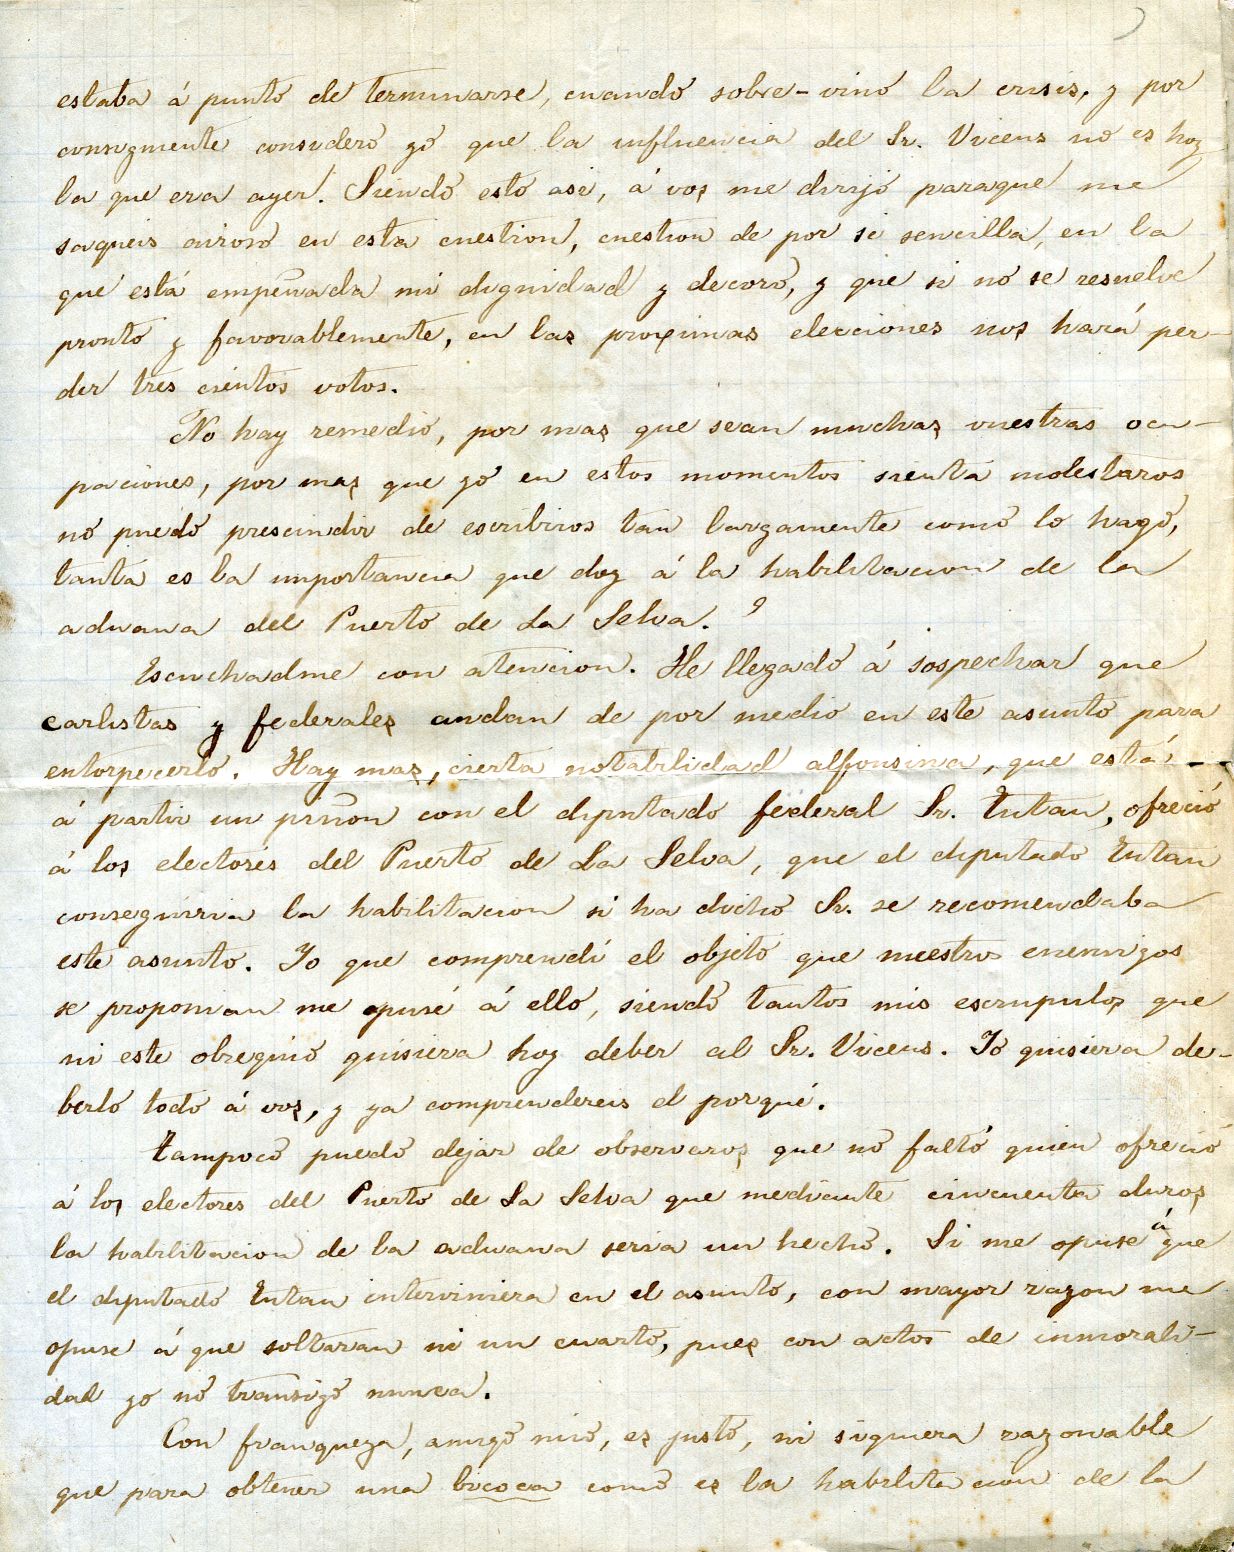 estaba á punto de terminarse, cuando sobre-vino la crisis, y por
consigmente considero yo que la influencia del Sr. Vicens no es hoy
la que era ayer. Siendo esto asi, á vos me dirijo paraque me
saqueis airoso en esta cuestion, cuestion de por si sencilla, en la
que está empeñada mi dignidad y decoro, y que si no se resuelve
pronto y favorablemente, en las proximas elecciones nos hará per-
der tres cientos votos.
No hay remedio, por mas que sean muchas vuestras ocu-
paciones, por mas que yo en estos momentos sienta molestaros
no puedo prescindir de escribiros tan largamente como lo hago,
tanta es la importancia que doy á la habilitacion de la
aduana del Puerto de La Selva.
Escuchadme con atencion. He llegado á sospechar que
carlistas y federales andan de por medio en este asunto para
entorpecerlo. Hay mas, cierta notabilidad alfonsina, que está
á partir un piñon con el diputado federal Sr. Tutau, ofreció
á los electores del Puerto de La Selva, que el diputado Tutau
conseguiria la habilitacion si ha dicho Sr. se recomendaba
este asunto. Yo que comprendí el objeto que nuestros enemigos
se proponian me opusé á ello, siendo tantos mis escrupulos que
ni este obsequio quisiera hoy deber al Sr. Vicens. Yo quisiera de-
berlo todo á vos, y ya comprendereis el porqué.
Tampoco puedo dejar de observaros que no faltó quien ofreció
á los electores del Puerto de La Selva que mediante cincuenta duros
la habilitacion de la aduana seria un hecho. Si me opuse á que
el diputado Tutau interviniera en el asunto, con mayor razon me
opuse á que soltaran ni un cuarto, pues con actos de inmorali-
dad yo no transigo nunca.
Con franqueza, amigo mio, es justo, ni siquiera razonable
que para obtener una bicoca como es la habilitacion de la